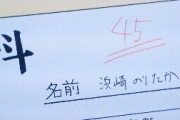 45
科
名前 浜崎 のりたか